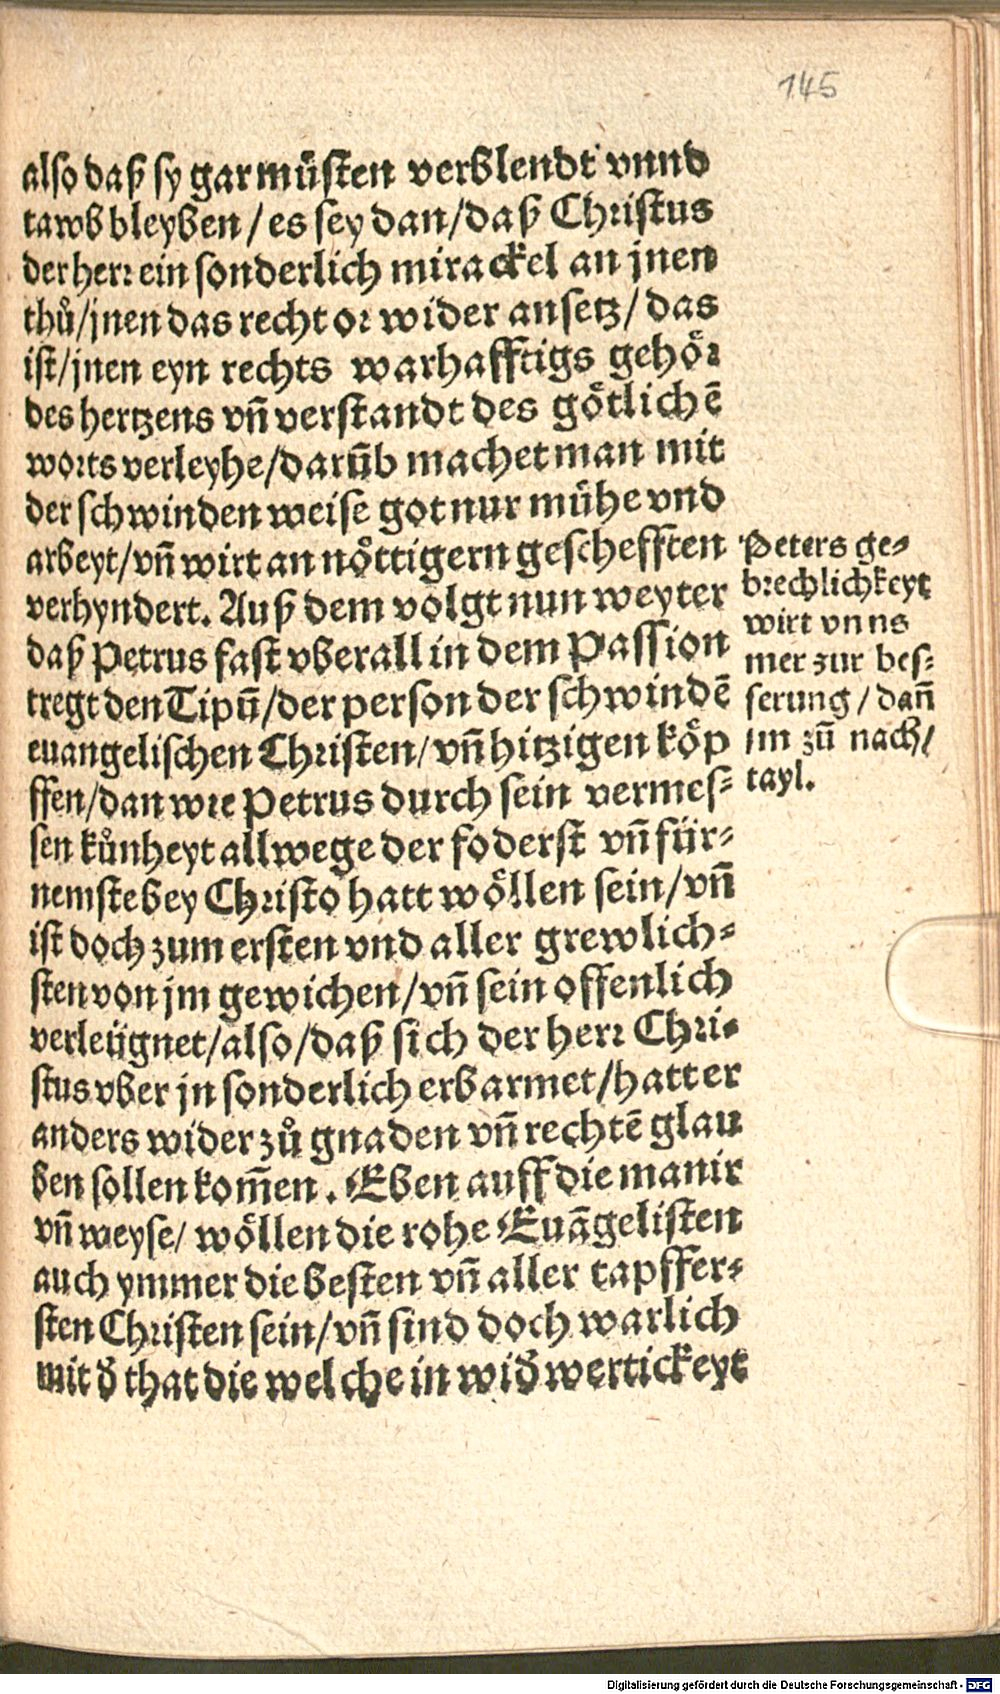 145
also daß sy gar müſten verblendt vnnd
tawb bleyben / es sey dan / daß Chriſtus
der herr ein sonderlich mirackel an jnen
thů / jnen das recht or wider ansetz / das
iſt / jnen eyn rechts warhafftigs gehöꝛ
des hertzens vñ verſtandt des götlichē
worts verleyhe / darūb machet man mit
der schwinden weise got nur mühe vnd
arbeyt / vñ wirt an nöttigern geschefften
verhyndert. Auß dem volgt nun weyter
daß Petrus faſt vberall in dem Paſſion
tregt den Tipū / der person der schwindē
euangelischen Chriſten / vñ hitzigen köp
ffen / dan wie Petrus durch sein vermes⸗
sen kůnheyt allwege der foderſt vñ für⸗
nemſte bey Chriſto hatt wöllen sein / vñ
iſt doch zum erſten vnd aller grewlich⸗
ſten von jm gewichen / vñ sein offenlich
verleügnet / also / daß sich der herr Chri⸗
ſtus vber jn sonderlich erbarmet / hatt er
anders wider zů gnaden vñ rechtē glau
ben sollen kom̄en. Eben auff die manir
vñ weyse / wöllen die rohe Euāgeliſten
auch ymmer die beſten vñ aller tapffer⸗
ſten Chriſten sein / vñ sind doch warlich
mit d̄ that die welche in wid̄wertickeyt
Peters ge⸗
brechlichkeyt
wirt vnns
mer zur bes⸗
serung / dañ
im zū nach /
tayl.
Digitalisierung gefördert durch die Deutsche Forschungsgemeinschaft - DFG